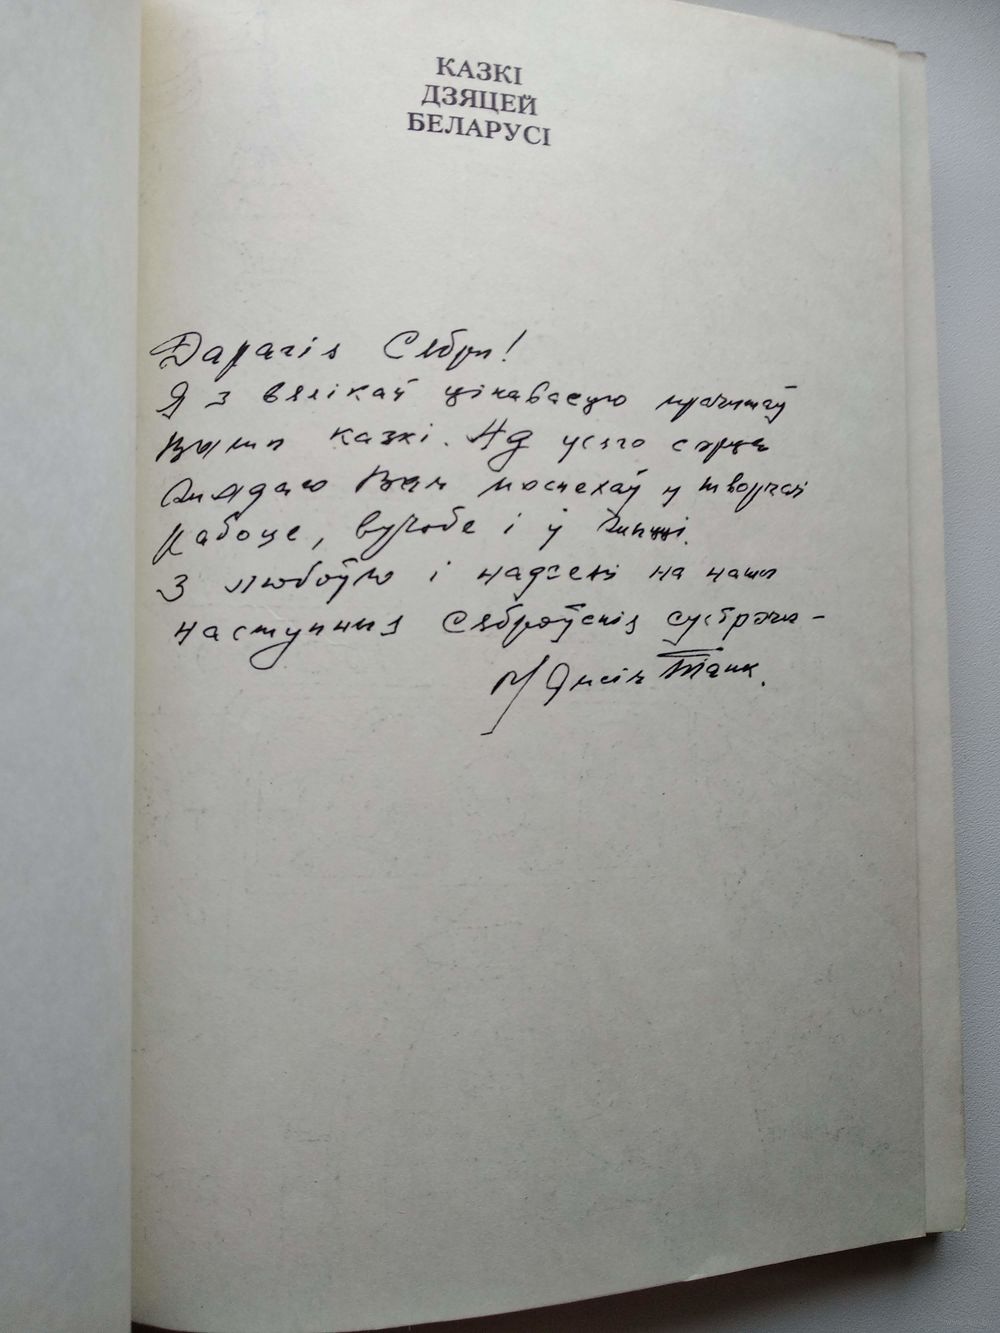 КАЗКІ
ДЗЯЦЕЙ
БЕЛАРУСІ
Дарагія Сябры!
Я з вялікай цікавасцю прачытаў
Вашы казкі. Ад усяго сэрца
жадаю Вам поспехаў у творчай
рабоце, вучобе і ў жыцці.
З любоўю і надзеяй на нашы
наступныя сяброўскія сустрэчы –
Максім Танк.